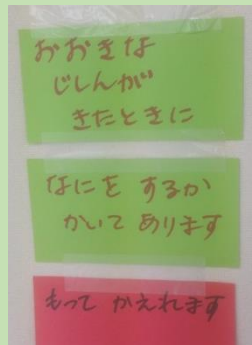 おおきな
じしんが
きたときに
なにをするか
かいてあります
もって かえれます